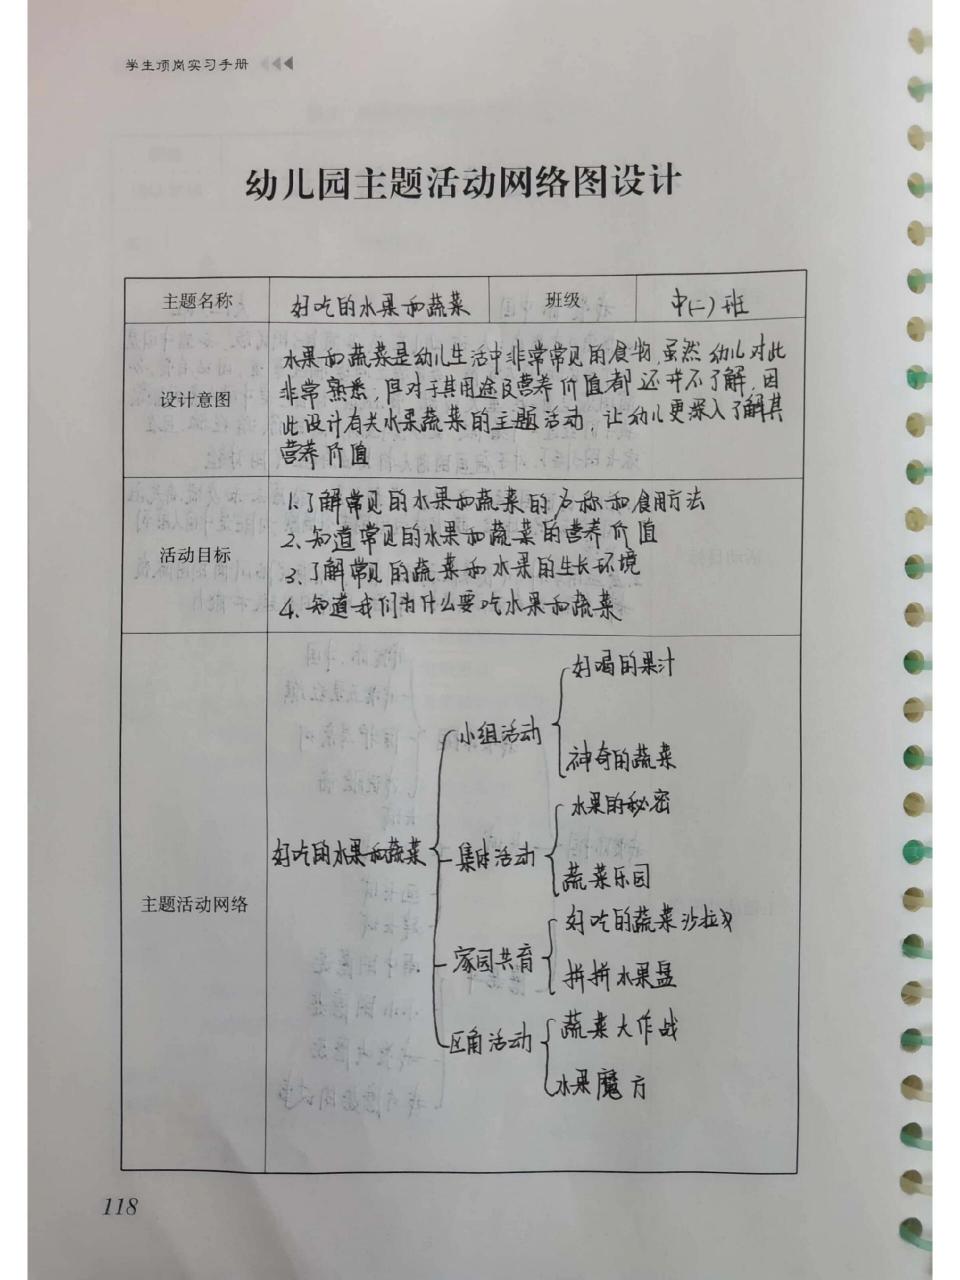 学生顶岗实习手册
幼儿园主题活动网络图设计
主题名称 好吃的水果和蔬菜 班级 中(二)班
设计意图
水果和蔬菜是幼儿生活中非常常见的食物,虽然幼儿对此
非常熟悉,但对于其用途及营养价值都还并不了解,因
此设计有关水果蔬菜的主题活动,让幼儿更深入了解其
营养价值
活动目标
1.了解常见的水果和蔬菜的名称和食用方法
2.知道常见的水果和蔬菜的营养价值
3.了解常见的蔬菜和水果的生长环境
4.知道我们为什么要吃水果和蔬菜
主题活动网络
好吃的水果和蔬菜
小组活动
好喝的果汁
神奇的蔬菜
集体活动
水果的秘密
蔬菜乐园
家园共育
好吃的蔬菜沙拉
拼拼水果盘
区角活动
蔬菜大作战
水果魔方
118